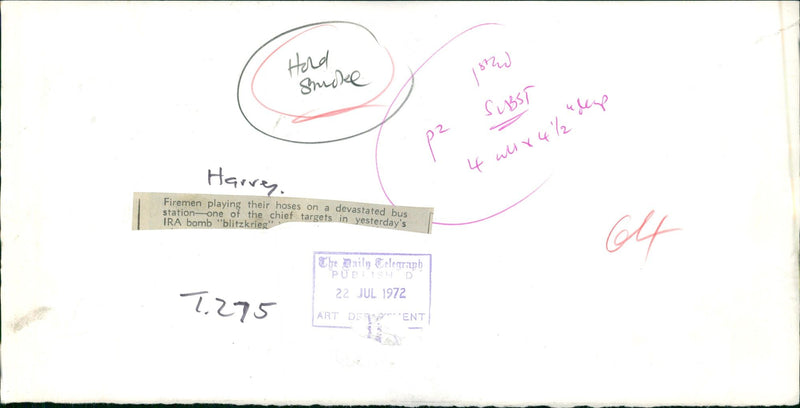 Hold
Smoke
1st Ed
SUBST
p2
4 cols x 4 1/2" deep
Harvey.
Firemen playing their hoses on a devastated bus
station—one of the chief targets in yesterday's
IRA bomb "blitzkrieg"
64
The Daily Telegraph
PUBLISH D
22 JUL 1972
ART DEPARTMENT
T.275